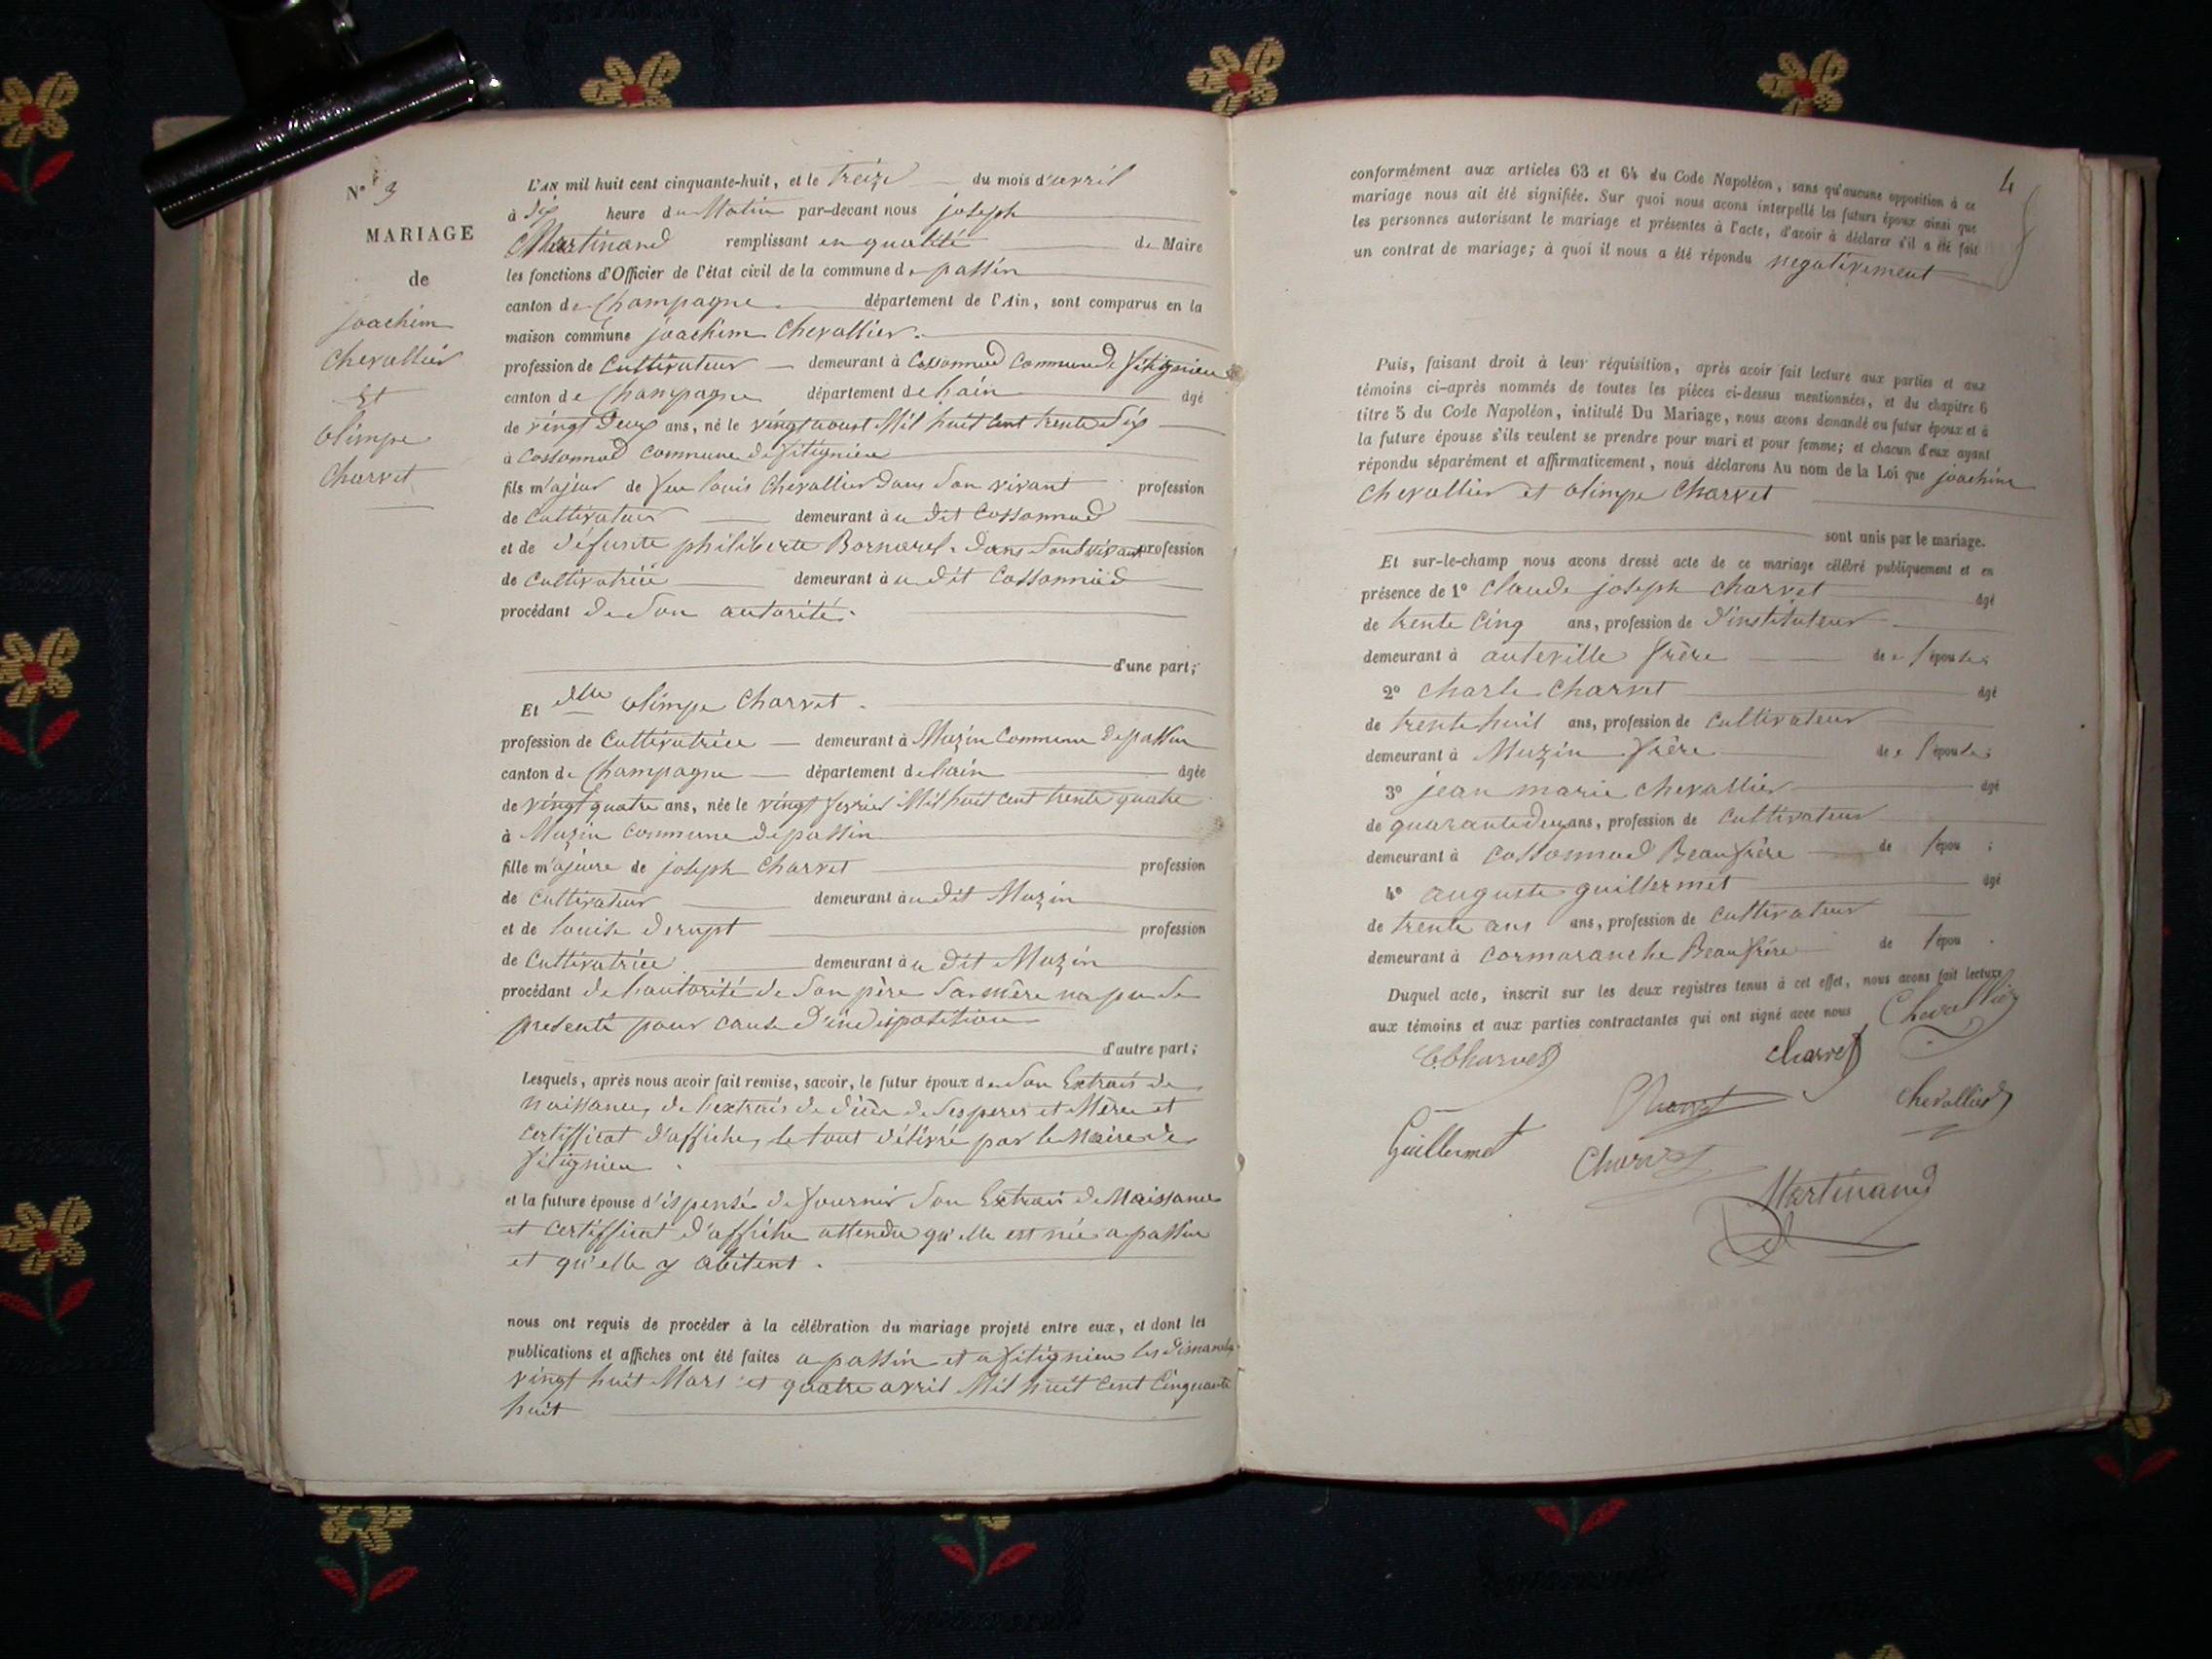 N° 3
MARIAGE
de
joachim
chevallier
Et
olimpe
charvet
L'AN mil huit cent cinquante-huit, et le treize du mois d'avril
à dix heure du Matin par-devant nous joseph
Martinand remplissant en qualité de Maire
les fonctions d'Officier de l'état civil de la commune de passin
canton de Champagne département de l'Ain, sont comparus en la
maison commune joachim Chevallier.
profession de Cultivateur demeurant à Cossonnod Commune de fitignieu
canton de Champagne département de lain âgé
de vingt deux ans, né le vingt aoust Mil huit Cent trente Six
à Cossonnod Commune de fitignieu
fils majeur de feu louis Chevallier dans Son vivant profession
de Cultivateur demeurant à u dit Cossonnod
et de défunte philiberte Bornarel. dans Son vivant profession
de Cultivatrice demeurant à u dit Cossonnod
procédant de Son autorité.
d'une part;
Et dlle olimpe Charvet.
profession de Cultivatrice demeurant à Muzin Commune de passin
canton de Champagne département de lain âgée
de vingt quatre ans, née le vingt fevrier Mil huit Cent trente quatre
à Muzin Commune de passin
fille majeure de joseph Charvet profession
de Cultivateur demeurant à u dit Muzin
et de louise profession
de Cultivatrice demeurant à u dit Muzin
procédant de lautorité de Son père Sa mère na pu Se
presenté pour Cause d'indisposition
d'autre part;
Lesquels, après nous avoir fait remise, savoir, le futur époux de Son Extrais de
Naissance, de l'extrais de décès de Ses peres et Mère et
Certifficat d'affiche, le tout délivré par le Maire de
fitignieu.
et la future épouse d'ispensée de fournir Son Extrais de Naissance
et Certifficat d'affiche attendu qu'elle est née a passin
et qu'elle y abitent.
nous ont requis de procéder à la célébration du mariage projeté entre eux, et dont les
publications et affiches ont été faites a passin et a fitignieu les dimanche
vingt huit Mars et quatre avril Mil huit Cent Cinquante
huit
4
conformément aux articles 63 et 64 du Code Napoléon, sans qu'aucune opposition à ce
mariage nous ait été signifiée. Sur quoi nous avons interpellé les futurs époux ainsi que
les personnes autorisant le mariage et présentes à l'acte, d'avoir à déclarer s'il a été fait
un contrat de mariage; à quoi il nous a été répondu negativement
Puis, faisant droit à leur réquisition, après avoir fait lecture aux parties et aux
témoins ci-après nommés de toutes les pièces ci-dessus mentionnées, et du chapitre 6
titre 5 du Code Napoléon, intitulé Du Mariage, nous avons demandé au futur époux et à
la future épouse s'ils veulent se prendre pour mari et pour femme; et chacun d'eux ayant
répondu séparément et affirmativement, nous déclarons Au nom de la Loi que joachim
chevallier et olimpe Charvet
sont unis par le mariage.
Et sur-le-champ nous avons dressé acte de ce mariage célébré publiquement et en
présence de 1° Claude joseph Charvet âgé
de trente Cinq ans, profession de d'instituteur
demeurant à auteville frère de l'épouse;
2° Charle Charvet âgé
de trente huit ans, profession de Cultivateur
demeurant à Muzin frère de l'épouse;
3° jean marie Chevallier âgé
de quarante deux ans, profession de Cultivateur
demeurant à Cossonnod Beaufrère de l'épou ;
4° auguste guillermet âgé
de trente ans ans, profession de Cultivateur
demeurant à Cormaranche Beaufrère de l'épou .
Duquel acte, inscrit sur les deux registres tenus à cet effet, nous avons fait lecture
aux témoins et aux parties contractantes qui ont signé avec nous Chevallier
Charvet charvet
Charvet chevallier
Guillermet Charvet
Martinand